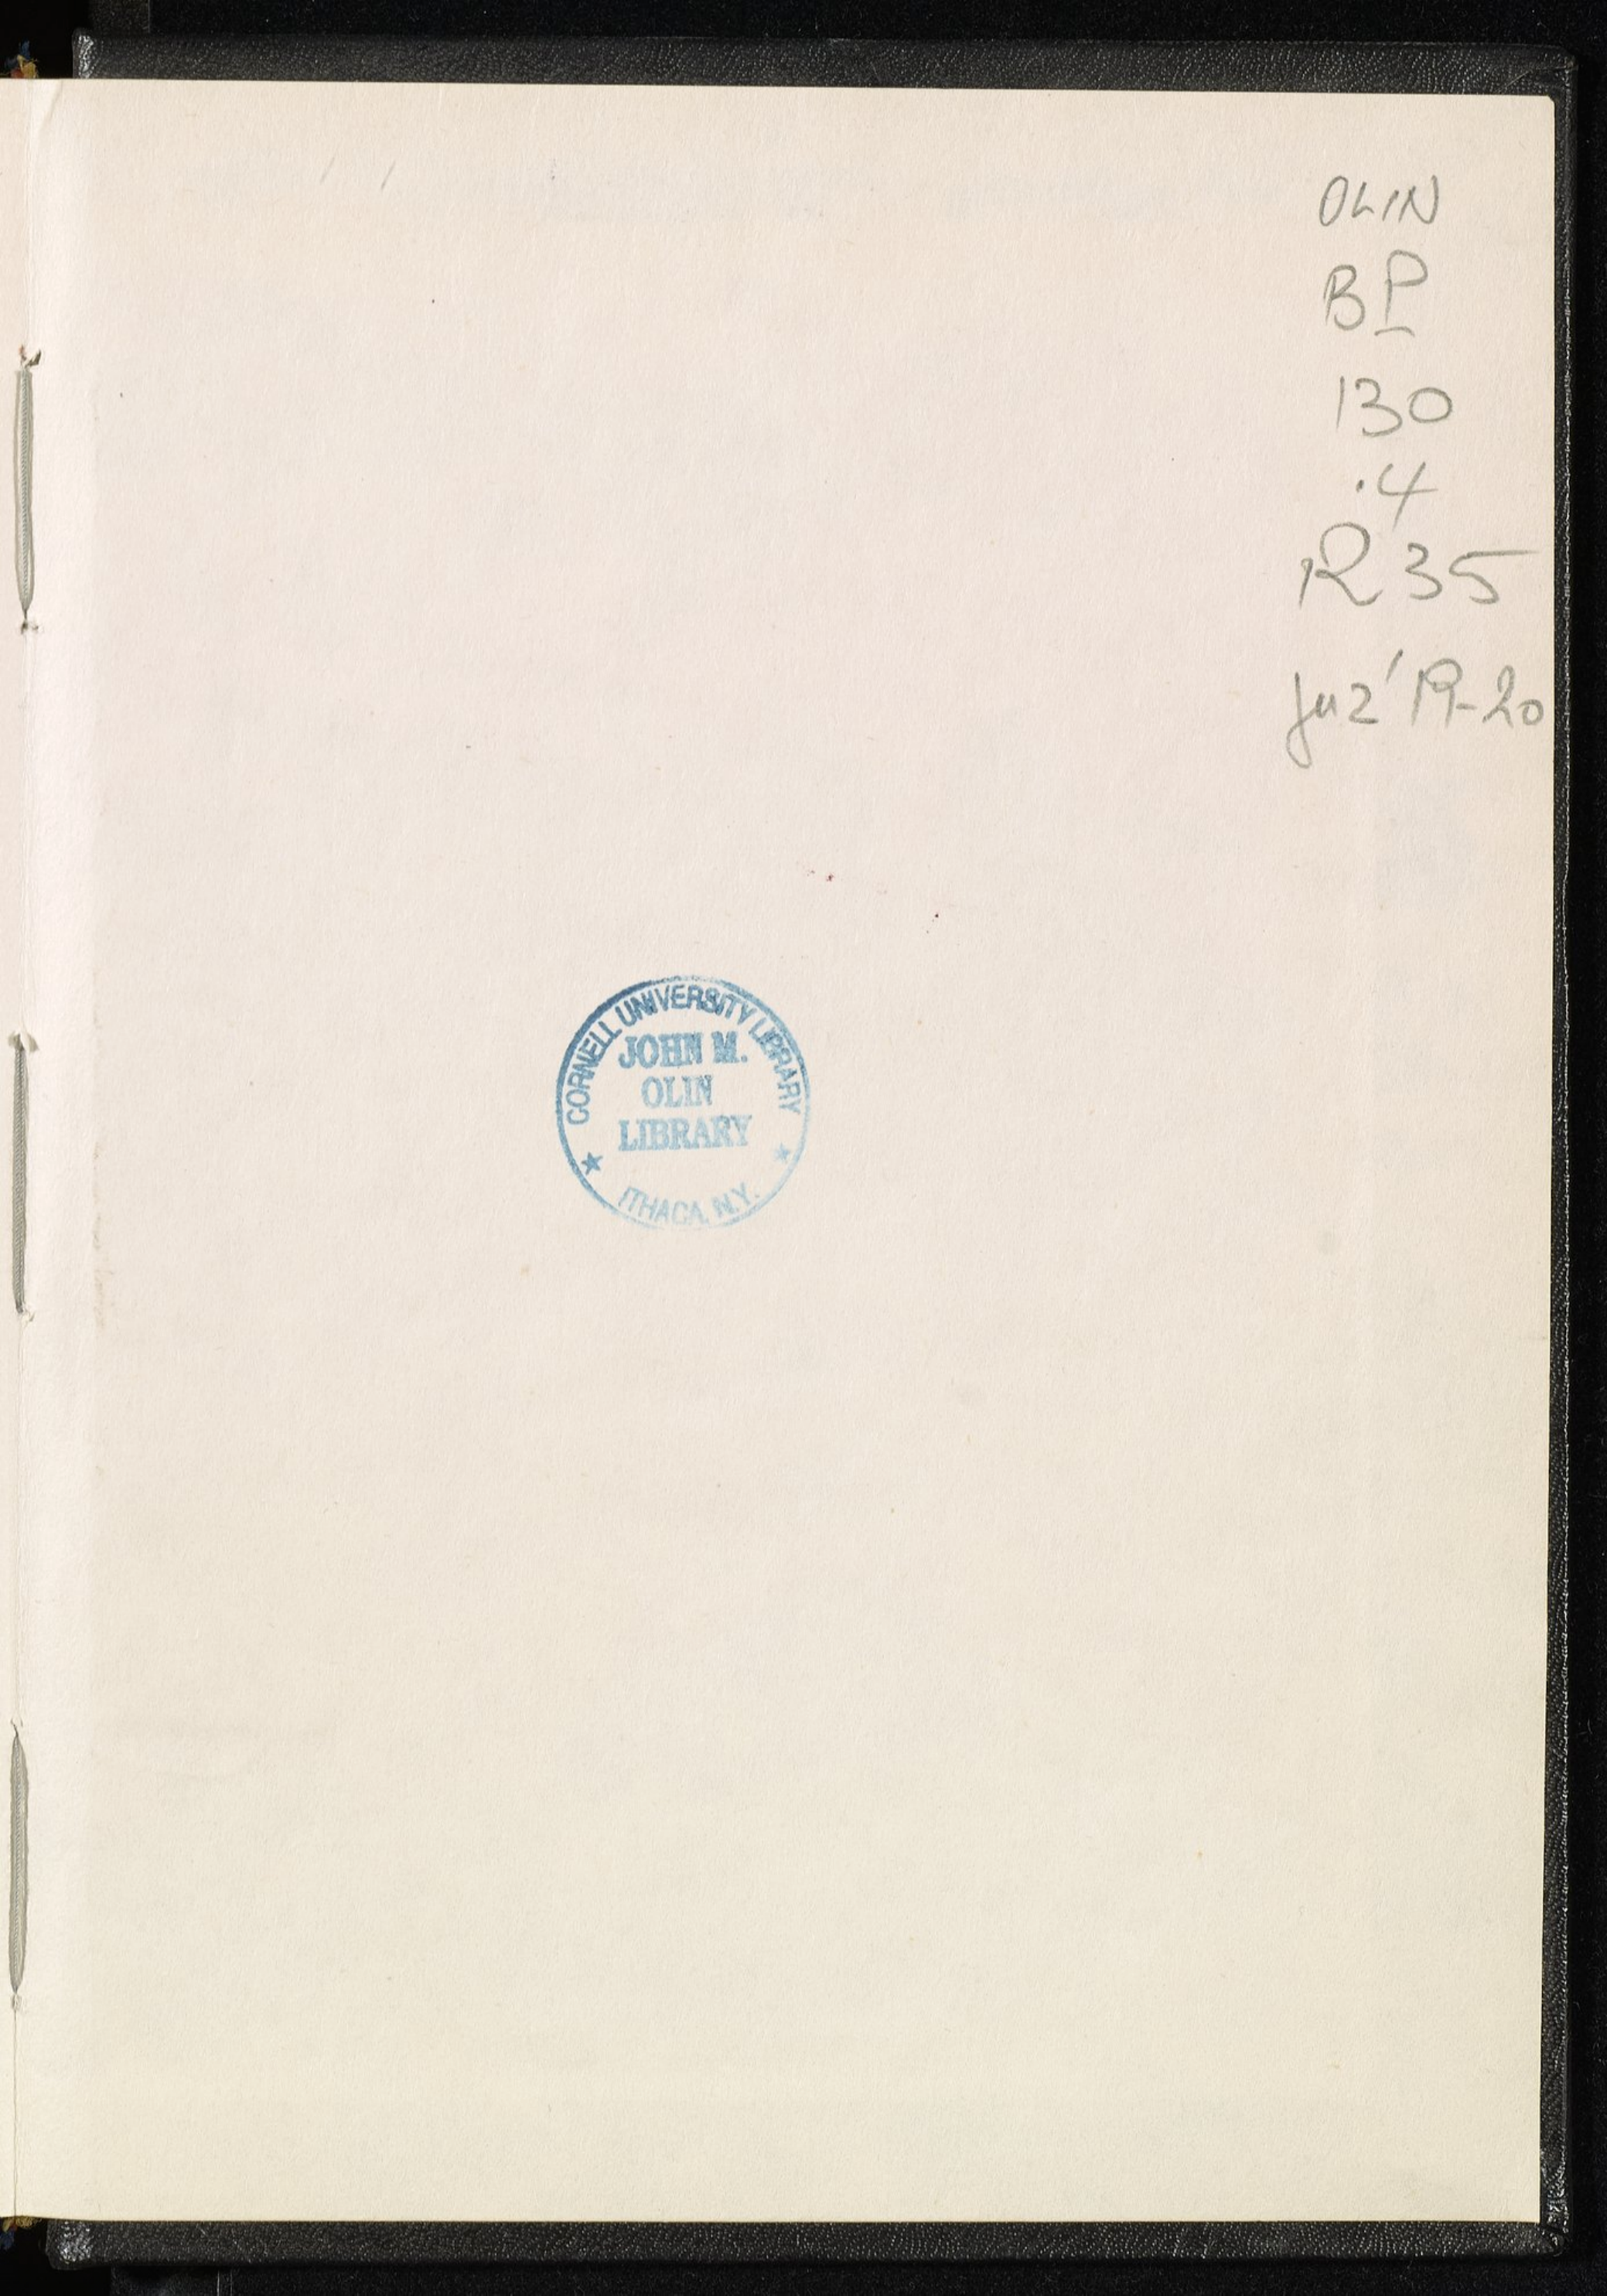 OLIN
BP
130
.4
R35
juz' 19-20
CORNELL UNIVERSITY LIBRARY
JOHN M.
OLIN
LIBRARY
★ ★
ITHACA, N.Y.